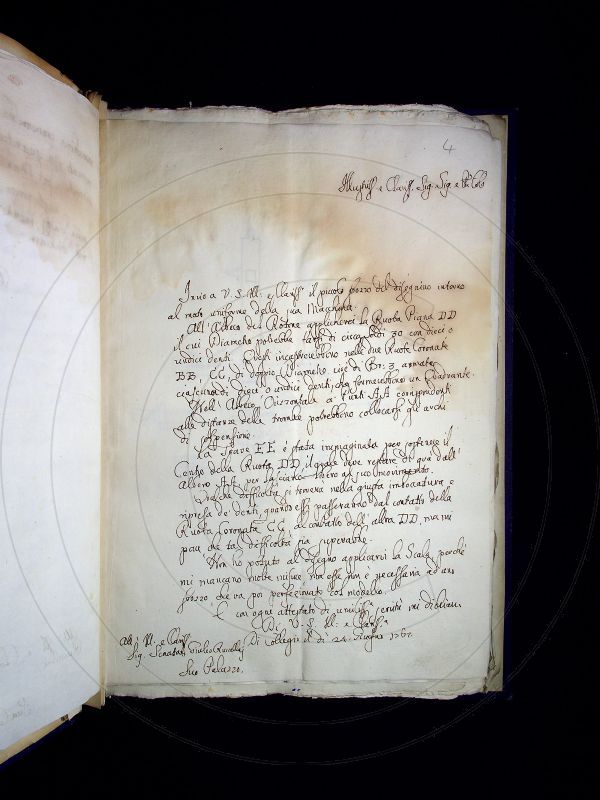 4
Illustriss. e Clariss. Sig. Sig. e
Invio a V. S. Ill. e Clariss. il piccolo sbozzo del disegnino intorno
al moto uniforme della sua Macchina.
All' Albero del Rotone applicherei la Ruota Pigna DD
il cui Diametro potrebbe farsi di circa soldi 30 con dieci o
undici denti. Questi incastrerebbero nelle due Ruote Coronate
BB, CC, di doppio Diametro cioè di Br: 3 armate
ciascuna di dieci o undici denti, che formerebbero un Quadrante.
Nell' Albero Orizzontale a punti AA corrispondenti
alle distanze delle trombe potrebbero collocarsi gli archi
di sospensione.
La Trave EE è stata immaginata per sostenere il
Centro della Ruota DD, il quale deve restare di quà dall'
Albero AA per lasciare libero il suo movimento.
Qualche difficoltà si temerà nella giusta imboccatura, e
ripresa de' denti quando essi passeranno dal contatto della
Ruota Coronata CC, al contatto dell' altra DD, ma mi
pare che tal difficoltà sia superabile.
Non ho potuto al disegno applicarvi la Scala perchè
mi mancano molte misure, ma esse non è necessaria ad uno
sbozzo che va poi perfezionato col modello.
E con ogni attestato di umiliss. servitù mi dichiaro
Di V. S. Ill. e Clariss.
Di Collegio li di 24 Giugno 1767.
All' Ill. e Clariss.
Sig. Senatore Giulio Rucellai
Suo Palazzo.